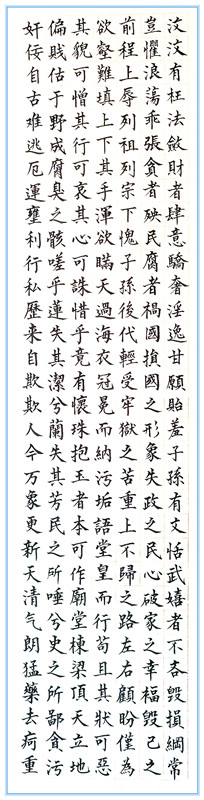 汶汶有枉法斂財者肆意驕奢淫逸甘願貽羞子孫有文恬武嬉者不吝毀損綱常
豈懼浪蕩乖張貪者殃民腐者禍國損國之形象失政之民心破家之幸福毀己之
前程上辱列祖列宗下愧子孫後代輕受牢獄之苦重上不歸之路左右顧盼僅為
欲壑難填上下其手渾欲瞞天過海衣冠冕而納污垢語堂皇而行苟且其狀可惡
其貌可憎其行可哀其心可誅惜乎竟有懷珠抱玉者本可作廟堂棟梁頂天立地
偏賤估于野成腐臭之骸嗟乎蓮失其潔兮蘭失其芳民之所唾兮史之所鄙貪污
奸佞自古難逃厄運壅利行私歷来自欺欺人今万象更新天清气朗猛藥去疴重